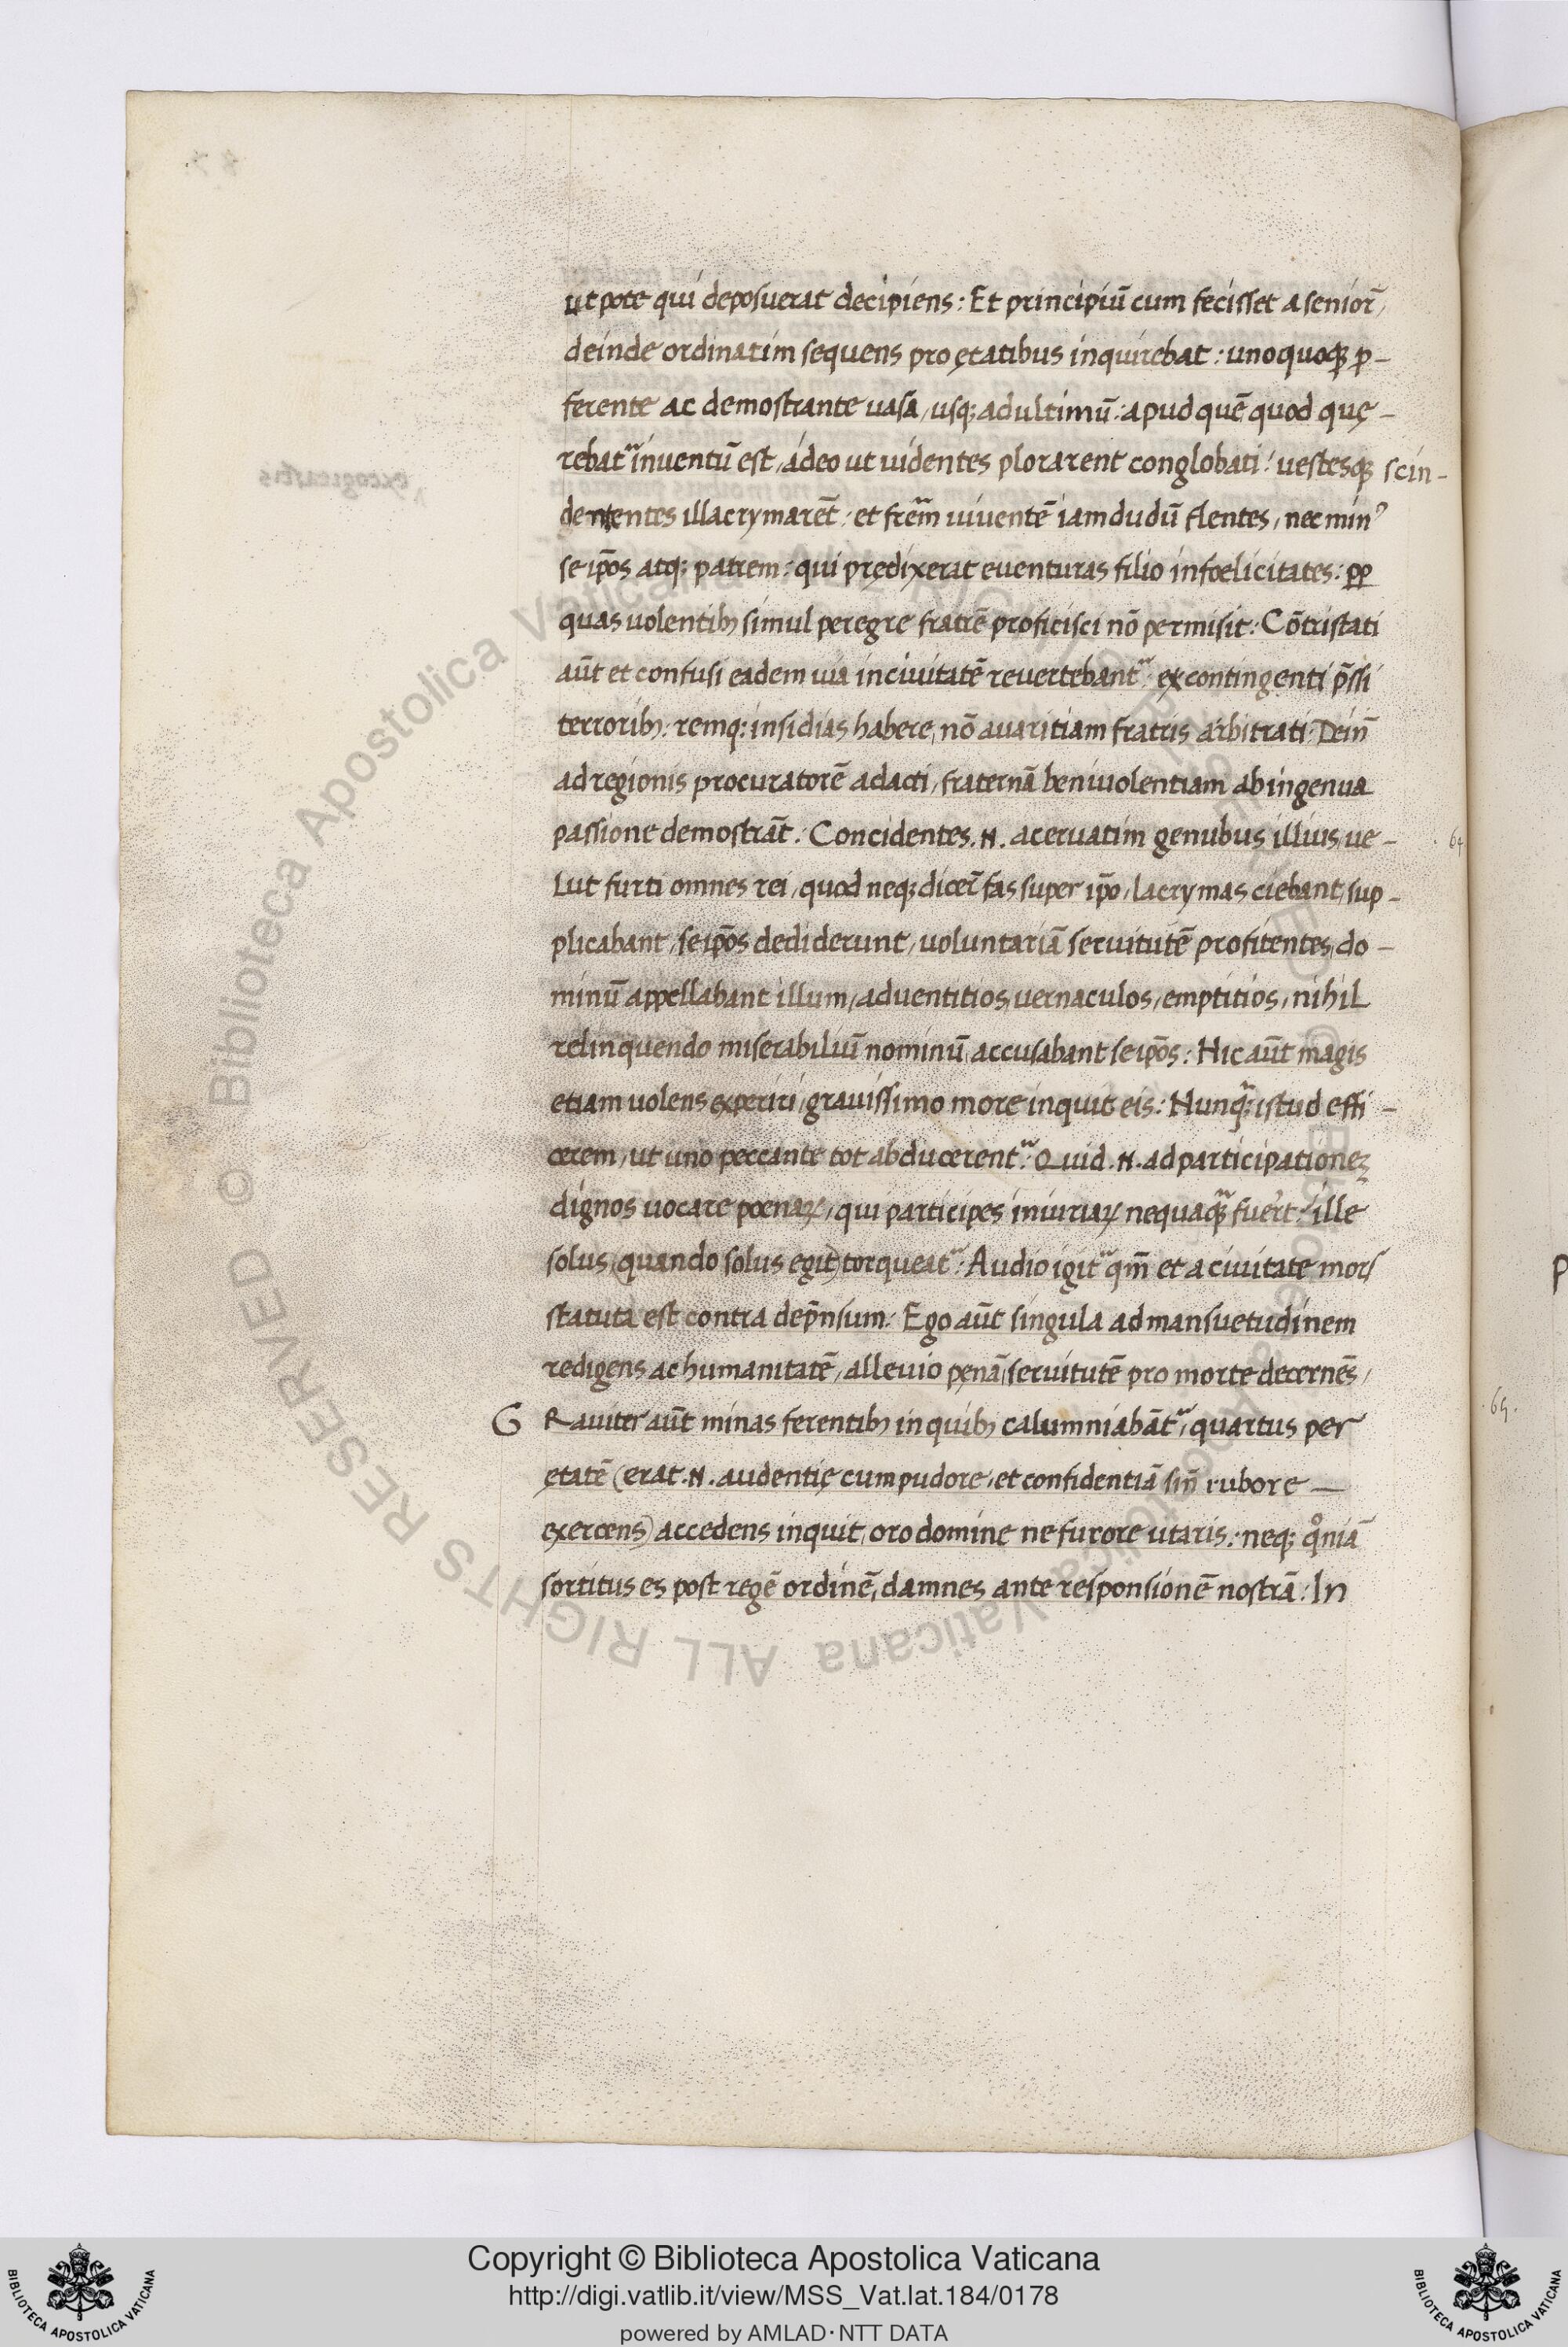 ut pote qui deposuerat decipiens: Et principiū cum fecisset a senior̄,
deinde ordinatim sequens pro ętatibus inquirebat: unoquoqꝫ ꝓ-
ferente ac demostrante uasā, usqꝫ ad ultimū: apud quē quod quę-
rebat᷑ inuentū est, adeo ut uidentes plorarent conglobati: uestesqꝫ scin-
dentes illacrymarēt: et frēm uiuentē iamdudū flentes, nec minꝰ
se ip̄os atqꝫ patrem: qui prędixerat euenturas filio infœlicitates: ꝓꝑ
quas uolentibꝫ simul peregre fratrē proficisci nō permisit: Cōtristati
aūt et confusi eadem uia in ciuitatē reuertebant᷑: ex contingenti p̄ssi
terroribꝫ: remqꝫ: insidias habere, nō auaritiam fratris arbitrati: Dein̄
ad regionis procuratorē adacti, fraternā beniuolentiam ab ingenua
passione demostrāt: Concidentes .N. aceruatim genubus illius, ue-
Lut furti omnes rei, quod neqꝫ dicer̄ fas super ip̄o, lacrymas ciebant, sup-
plicabant, se ip̄os dediderunt, uoluntariā seruitutē profitentes, do-
minū appellabant illum, aduentitios, uernaculos, emptitios, nihil
relinquendo miserabiliū nominū, accusabant se ip̄os: Hic aūt magis
etiam uolens experiri, grauissimo more inquit eis: Nunqꝫ᷑ istud effi-
cerem, ut uno peccante tot abducerent᷑: Quid .N. ad participationeꝫ
dignos uocare poenaꝝ, qui participes iniuriaꝝ nequaqꝫ᷑ fuer̄t: ille
solus (quando solus egit) torqueat᷑: Audio igit᷑ qm̄ et a ciuitate mors
statuta est contra dep̄nsum: Ego aūt singula ad mansuetudinem
redigens ac humanitatē, alleuio pęnā, seruitutē pro morte decernēs,
G Rauiter aūt minas ferentibꝫ in quibꝫ calumniabāt᷑, quartus per
ętatē (erat .N. audentię cum pudore, et confidentiā sin̄ rubore —
exercens) accedens inquit, oro domine ne furore utaris: neqꝫ qm̊niā
sortitus es post regē ordinē, damnes ante responsionē nostrā: In
. 64
. 65 .
P
Copyright © Biblioteca Apostolica Vaticana
http://digi.vatlib.it/view/MSS_Vat.lat.184/0178
powered by AMLAD·NTT DATA
BIBLIOTECA APOSTOLICA VATICANA
BIBLIOTECA APOSTOLICA VATICANA